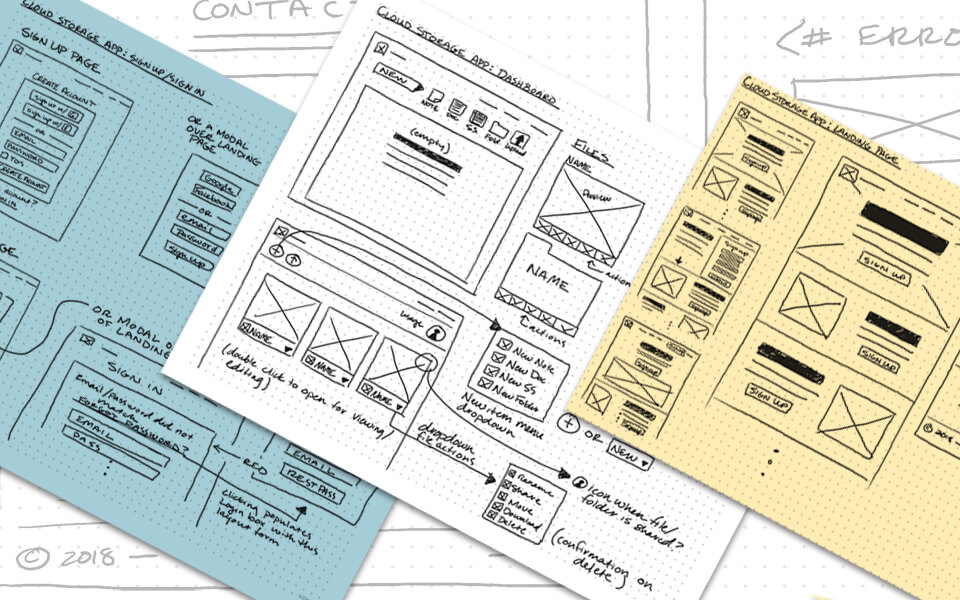 CONTAC
<# ERRO
© 2018
CLOUD STORAGE APP: SIGN UP/SIGN IN
SIGN UP PAGE
CREATE ACCOUNT
sign up w/ G
sign up w/ f
OR
EMAIL
PASSWORD
TOS
CREATE ACCOUNT
account?
OR A MODAL
OVER LANDING
PAGE
Google
Facebook
OR
email
password
Sign Up
OR MODAL O
OF LANDING
SIGN IN
Email/Password did not
match.
FORGOT PASSWORD?
EMAIL
PASS
RED
EMAIL
REST PASS
clicking populates
login box with this
layout form
CLOUD STORAGE APP: DASHBOARD
NEW
NOTE
DOC
SS
FOLD
UPLOAD
(empty)
usage
NAME
NAME
NAME
(double click to open for viewing/
editing)
dropdown
file actions
FILES
NAME
Preview
action
NAME
actions
New Note
New Doc
New SS
New Folder
New item menu
dropdown
OR
NEW
Rename
Share
Move
Download
Delete
Icon when file/
folder is shared?
(confirmation on
delete)
CLOUD STORAGE APP: LANDING PAGE
Sign up
SIGN UP
SIGN UP
SIGN UP
© 2018